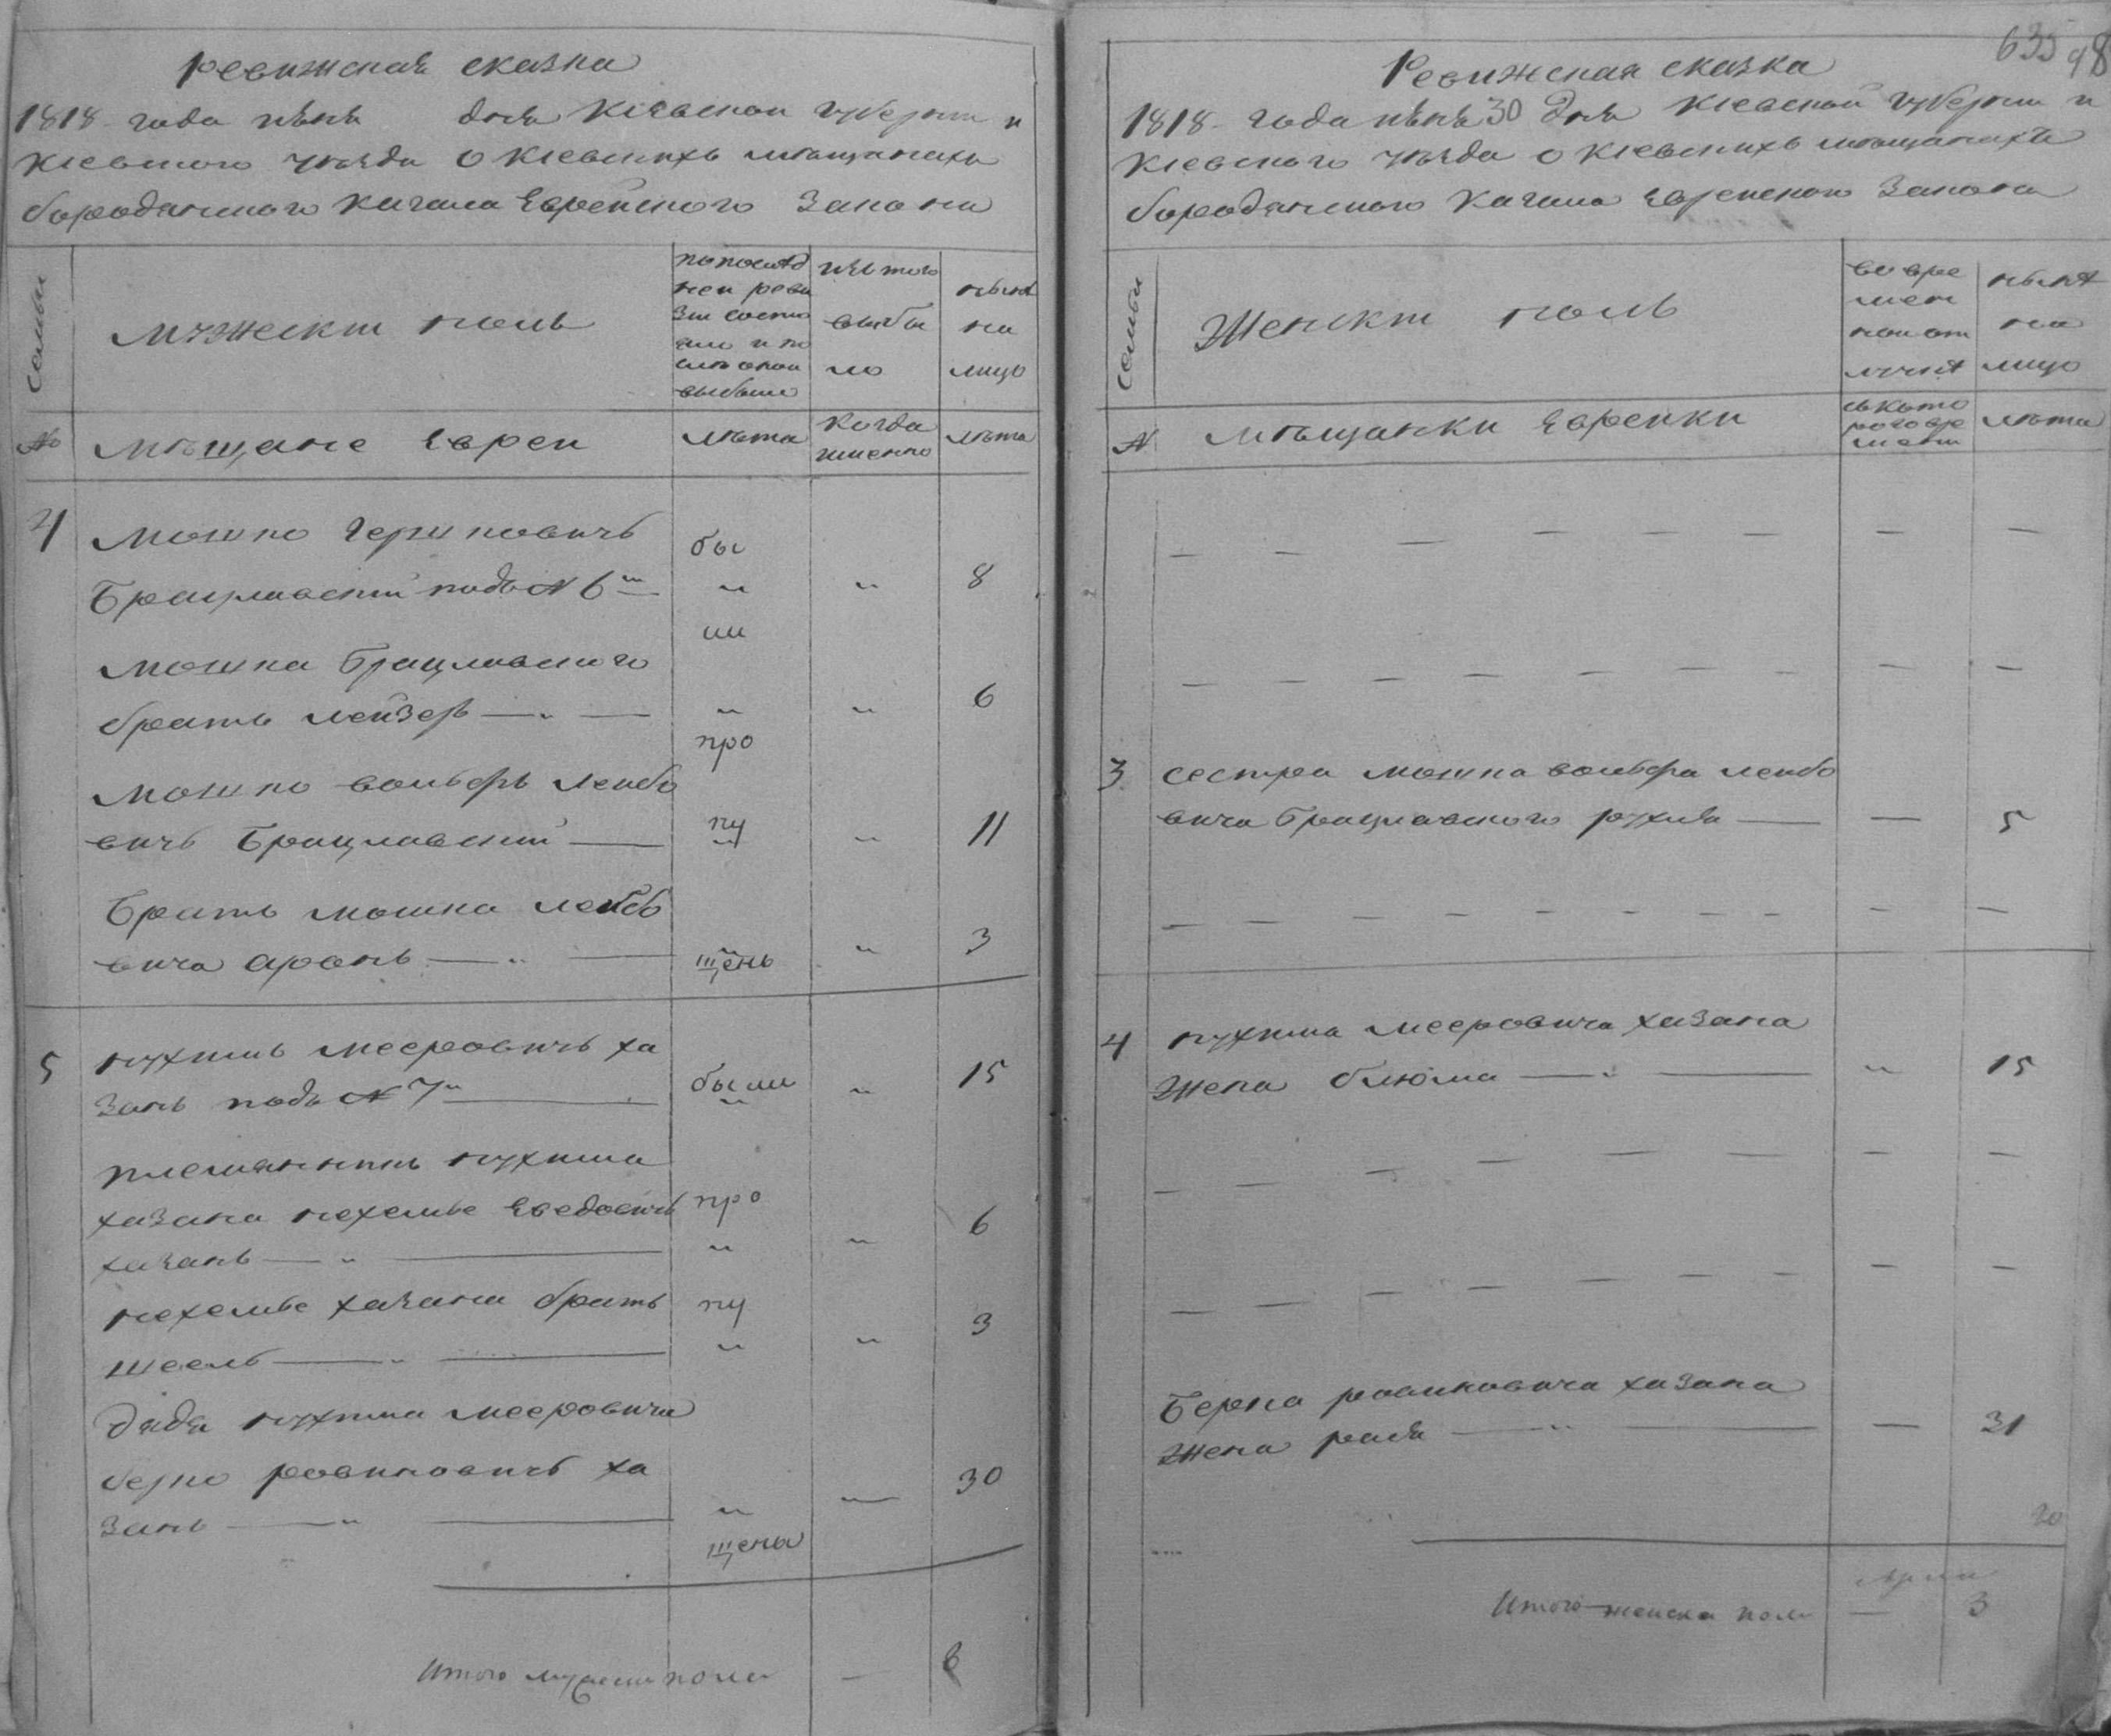 Ревижская сказка
1818 года июня дня Киевской губернии и
Киевского уезда о Киевских мѣщанахъ
бородянского Кагала Еврейского Закона
Семьи
Мужеский полъ
по послѣд
ней реви
зіи состо
яло и по
слѣ оной
выбыло
изъ того
выбы
ло
нынѣ
на
лицо
№
Мѣщане Евреи
лѣта
Когда
именно
лѣта
4
Мошко Гершковичъ
Брацлавскій подъ № 6м
бы
8
ли
Мошка Брацлавского
братъ Лейзеръ
6
про
Мошко Вольберъ Лейбо
вичъ Брацлавскій
пу
11
Братъ Мошка Лейбо
вича Аронъ
щенъ
3
5
Нухимъ Мееровичъ Ха
занъ подъ № 7м
были
15
Племянникъ Нухима
Хазана Нехемье
Хазанъ
про
6
Нехемье Хазана братъ
пу
3
Дядя Нухима Мееровича
Берко Рович Ха
занъ
30
щены
Итого мужеска пола
8
635 98
Ревижская сказка
1818 года июня 30 дня Киевской губернии и
Киевского уѣзда о Киевскихъ мѣщанахъ
бородянского Кагала Еврейского Закона
Семьи
Женский полъ
во вре
мен
ной от
лучкѣ
нынѣ
на
лицо
№
Мѣщанки Еврейки
съ кото
рого вре
мени
лѣта
3
Сестра Мошка Вольбера Лейбо
вича Брацлавского Рухля
5
4
Нухима Мееровича Хазана
Жена Блюма
15
Берка Хазана
Жена Рася
31
Итого женска пола
3